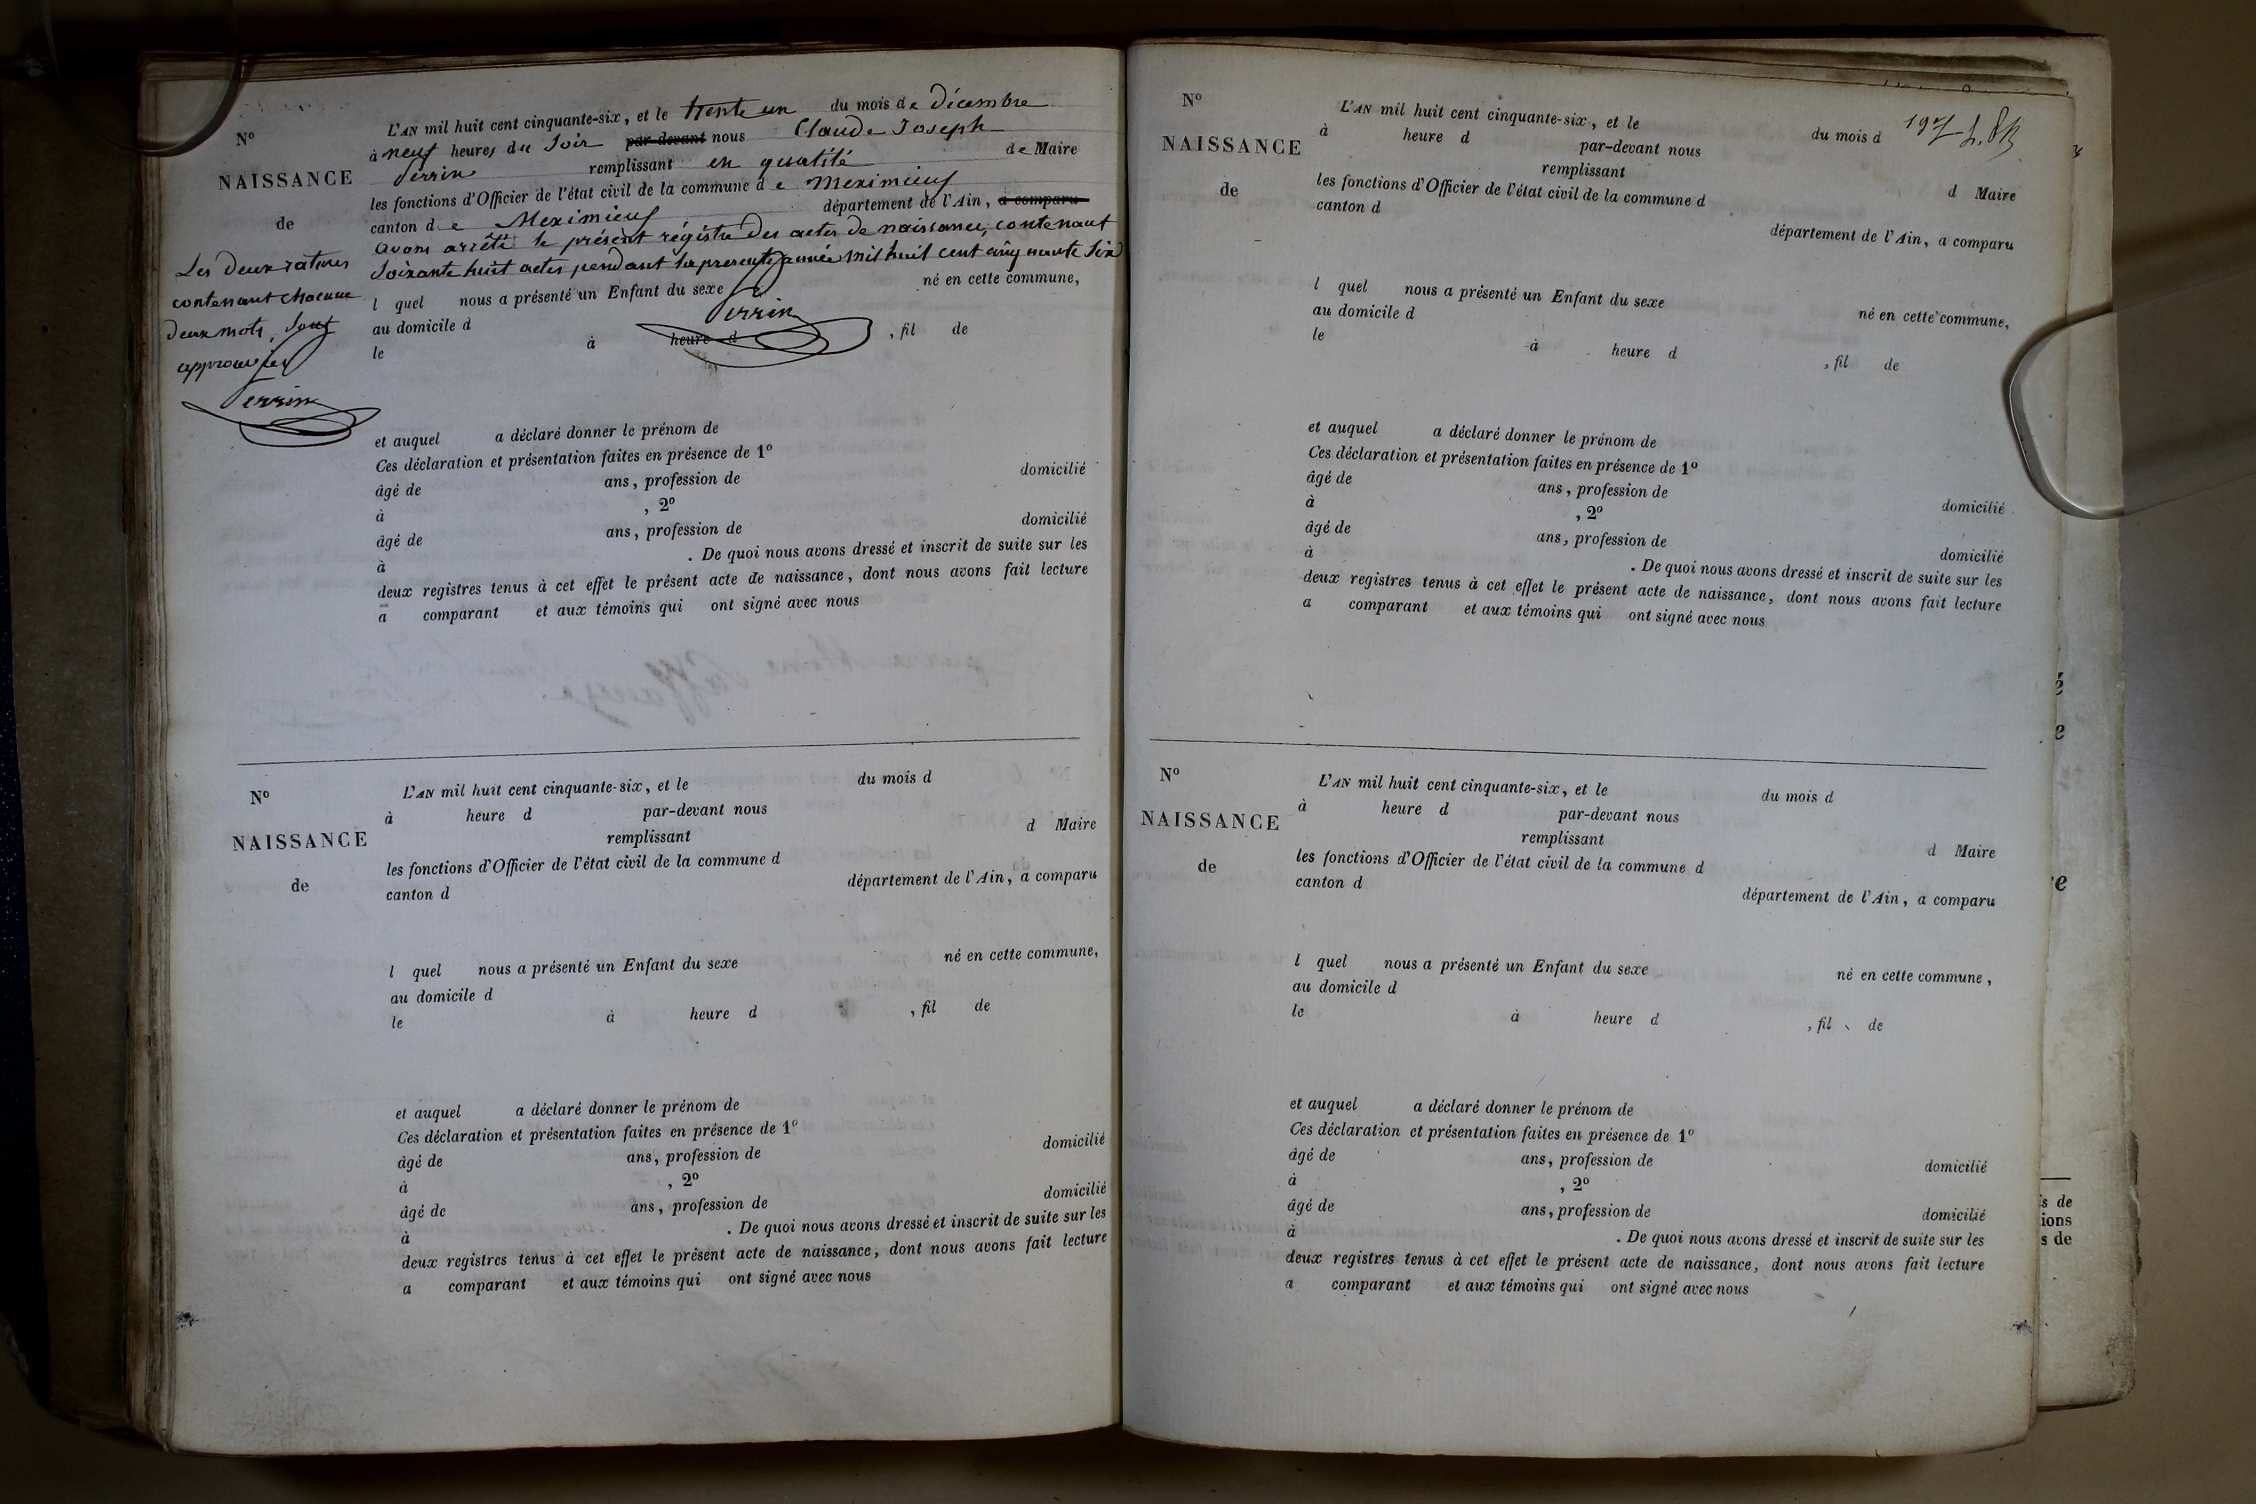 N°
NAISSANCE
de
Les deux ratures
contenant chacune
deux mots, sont
approuvées
Perrin
L'AN mil huit cent cinquante-six, et le trente un du mois de décembre
à neuf heures du soir par-devant nous Claude Joseph
Perrin remplissant en qualité de Maire
les fonctions d'Officier de l'état civil de la commune de Meximieux
canton de Meximieux département de l'Ain, a comparu
avons arrêté le présent régistre des actes de naissance, contenant
soixante huit actes pendant la presente année mil huit cent cinquante six
l quel nous a présenté un Enfant du sexe né en cette commune,
Perrin
au domicile d
le à heure d , fil de
et auquel a déclaré donner le prénom de
Ces déclaration et présentation faites en présence de 1°
âgé de ans, profession de domicilié
à , 2°
âgé de ans, profession de domicilié
à . De quoi nous avons dressé et inscrit de suite sur les
deux registres tenus à cet effet le présent acte de naissance, dont nous avons fait lecture
a comparant et aux témoins qui ont signé avec nous
N°
NAISSANCE
de
L'AN mil huit cent cinquante-six, et le du mois d
à heure d par-devant nous
remplissant d Maire
les fonctions d'Officier de l'état civil de la commune d
canton d département de l'Ain, a comparu
l quel nous a présenté un Enfant du sexe né en cette commune,
au domicile d
le à heure d , fil de
et auquel a déclaré donner le prénom de
Ces déclaration et présentation faites en présence de 1°
âgé de ans, profession de domicilié
à , 2°
âgé de ans, profession de domicilié
à . De quoi nous avons dressé et inscrit de suite sur les
deux registres tenus à cet effet le présent acte de naissance, dont nous avons fait lecture
a comparant et aux témoins qui ont signé avec nous
197
N°
NAISSANCE
de
L'AN mil huit cent cinquante-six, et le du mois d
à heure d par-devant nous
remplissant d Maire
les fonctions d'Officier de l'état civil de la commune d
canton d département de l'Ain, a comparu
l quel nous a présenté un Enfant du sexe né en cette commune,
au domicile d
le à heure d , fil de
et auquel a déclaré donner le prénom de
Ces déclaration et présentation faites en présence de 1°
âgé de ans, profession de domicilié
à , 2°
âgé de ans, profession de domicilié
à . De quoi nous avons dressé et inscrit de suite sur les
deux registres tenus à cet effet le présent acte de naissance, dont nous avons fait lecture
a comparant et aux témoins qui ont signé avec nous
N°
NAISSANCE
de
L'AN mil huit cent cinquante-six, et le du mois d
à heure d par-devant nous
remplissant d Maire
les fonctions d'Officier de l'état civil de la commune d
canton d département de l'Ain, a comparu
l quel nous a présenté un Enfant du sexe né en cette commune,
au domicile d
le à heure d , fil de
et auquel a déclaré donner le prénom de
Ces déclaration et présentation faites en présence de 1°
âgé de ans, profession de domicilié
à , 2°
âgé de ans, profession de domicilié
à . De quoi nous avons dressé et inscrit de suite sur les
deux registres tenus à cet effet le présent acte de naissance, dont nous avons fait lecture
a comparant et aux témoins qui ont signé avec nous